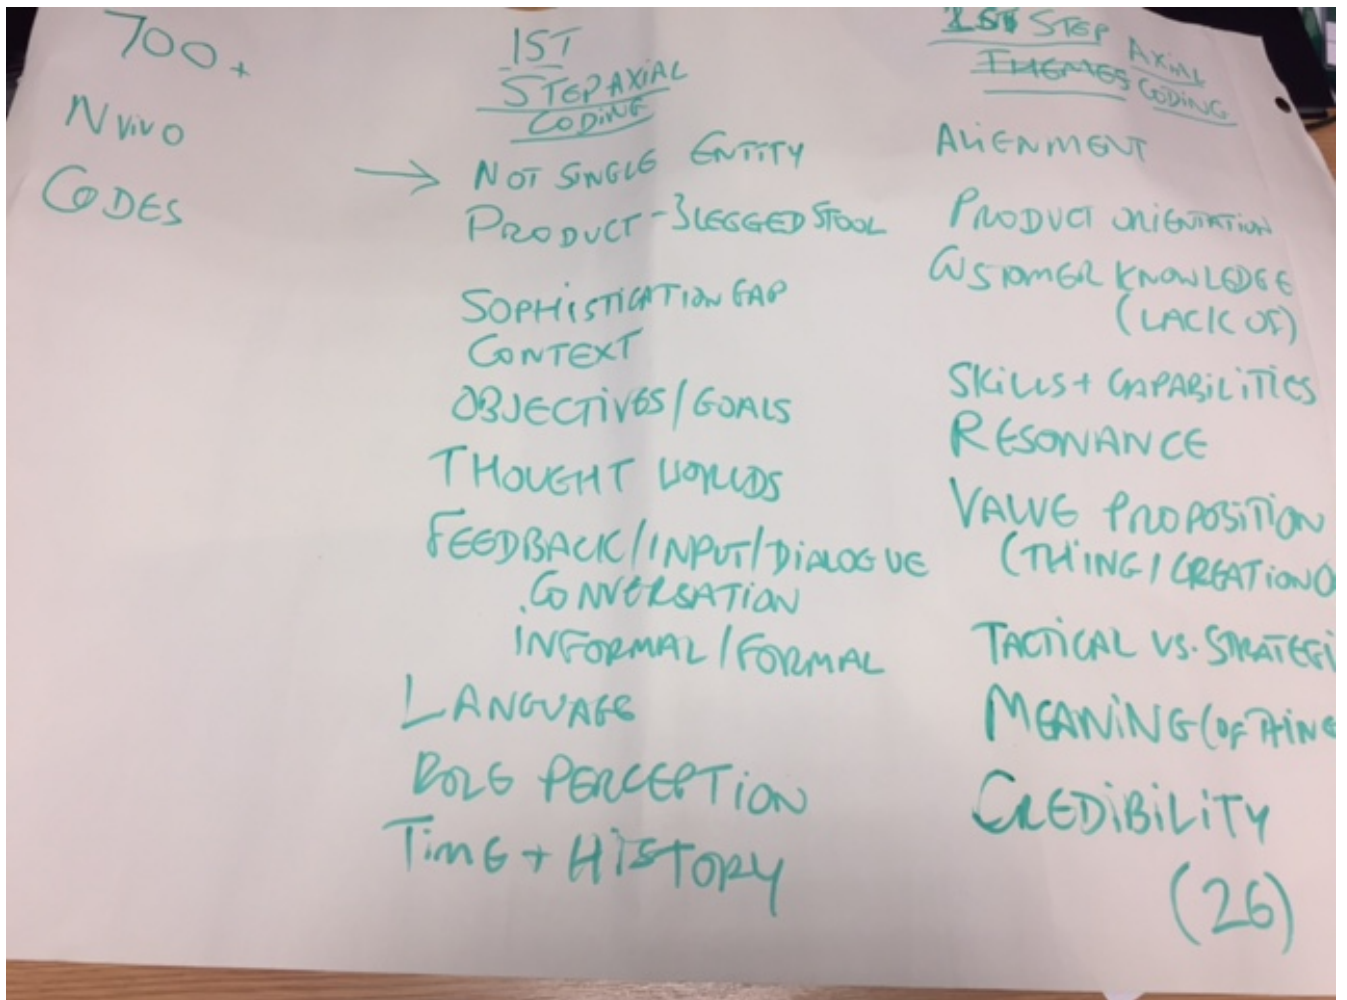 700+
Nvivo
CODES
1ST
STEP AXIAL
CODING
→ NOT SINGLE ENTITY
PRODUCT - 3 LEGGED STOOL
SOPHISTICATION GAP
CONTEXT
OBJECTIVES/GOALS
THOUGHT WORLDS
FEEDBACK/INPUT/DIALOGUE
.CONVERSATION
INFORMAL/FORMAL
LANGUAGE
ROLE PERCEPTION
TIME + HISTORY
1ST STEP AXIAL
THEMES CODING
ALIENMENT
PRODUCT ORIENTATION
CUSTOMER KNOWLEDGE
(LACK OF)
SKILLS + CAPABILITIES
RESONANCE
VALUE PROPOSITION
(THING/CREATION O
TACTICAL VS. STRATEGI
MEANING (OF THING
CREDIBILITY
(26)